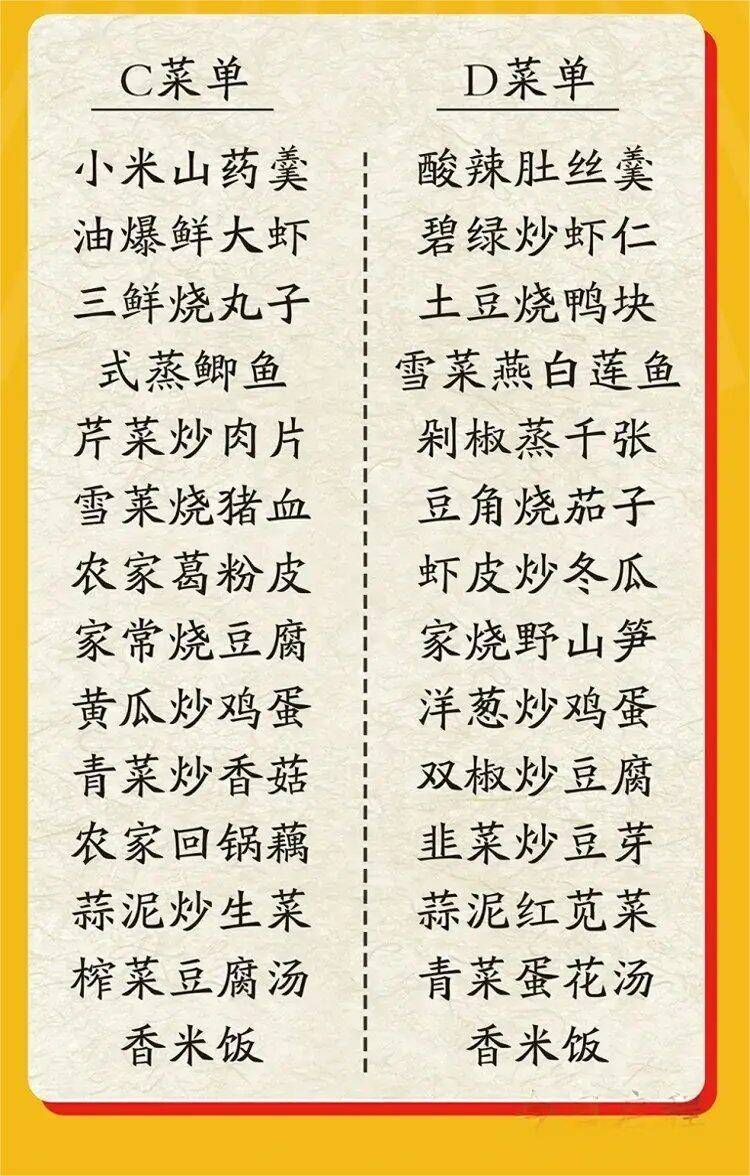 C菜单
小米山药羹
油爆鲜大虾
三鲜烧丸子
式蒸鲫鱼
芹菜炒肉片
雪菜烧猪血
农家葛粉皮
家常烧豆腐
黄瓜炒鸡蛋
青菜炒香菇
农家回锅藕
蒜泥炒生菜
榨菜豆腐汤
香米饭
D菜单
酸辣肚丝羹
碧绿炒虾仁
土豆烧鸭块
雪菜燕白莲鱼
剁椒蒸千张
豆角烧茄子
虾皮炒冬瓜
家烧野山笋
洋葱炒鸡蛋
双椒炒豆腐
韭菜炒豆芽
蒜泥红苋菜
青菜蛋花汤
香米饭